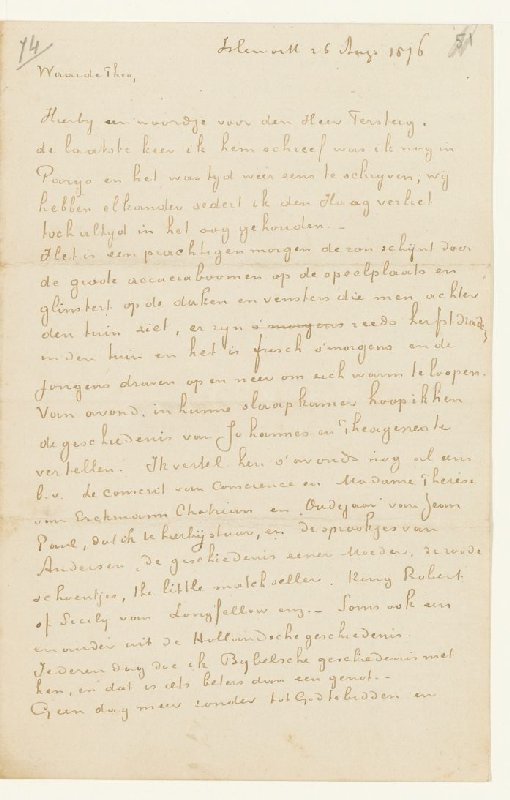 74
Isleworth 26 Aug. 1876
Waarde Theo,
Hierbij een woordje voor den Heer Tersteeg.
de laatste keer ik hem schreef was ik nog in
Parys en het was tyd weer eens te schryven, wy
hebben elkander sedert ik den Haag verliet
toch altyd in het oog gehouden. —
Het is een prachtigen morgen de zon schynt door
de groote acaciaboomen op de speelplaats en
glinstert op de daken en vensters die men achter
den tuin ziet, er zyn s'morgens reeds herfstdraden
in den tuin en het is frisch s'morgens en de
jongens draven op en neer om zich warm te loopen.
Van avond, in hunne slaapkamer hoop ik hen
de geschiedenis van Johannes en Theagenes te
vertellen. Ik vertel hen s'avonds nog al eens
b.v. de conscrit van Conscience en Madame Thérèse
van Erckmann Chatrian en "Oudejaar" van Jean
Paul, dat ik U hierbij stuur, en de sprookjes van
Andersen, de geschiedenis eener Moeder, de roode
schoentjes, the little matchseller. King Robert
of Sicily van Longfellow enz. — Soms ook een
en ander uit de Hollandsche geschiedenis.
Iederen dag doe ik Bybelsche geschiedenis met
hen, en dat is iets beters dan een genot. —
Geen dag meer zonder tot God te bidden en